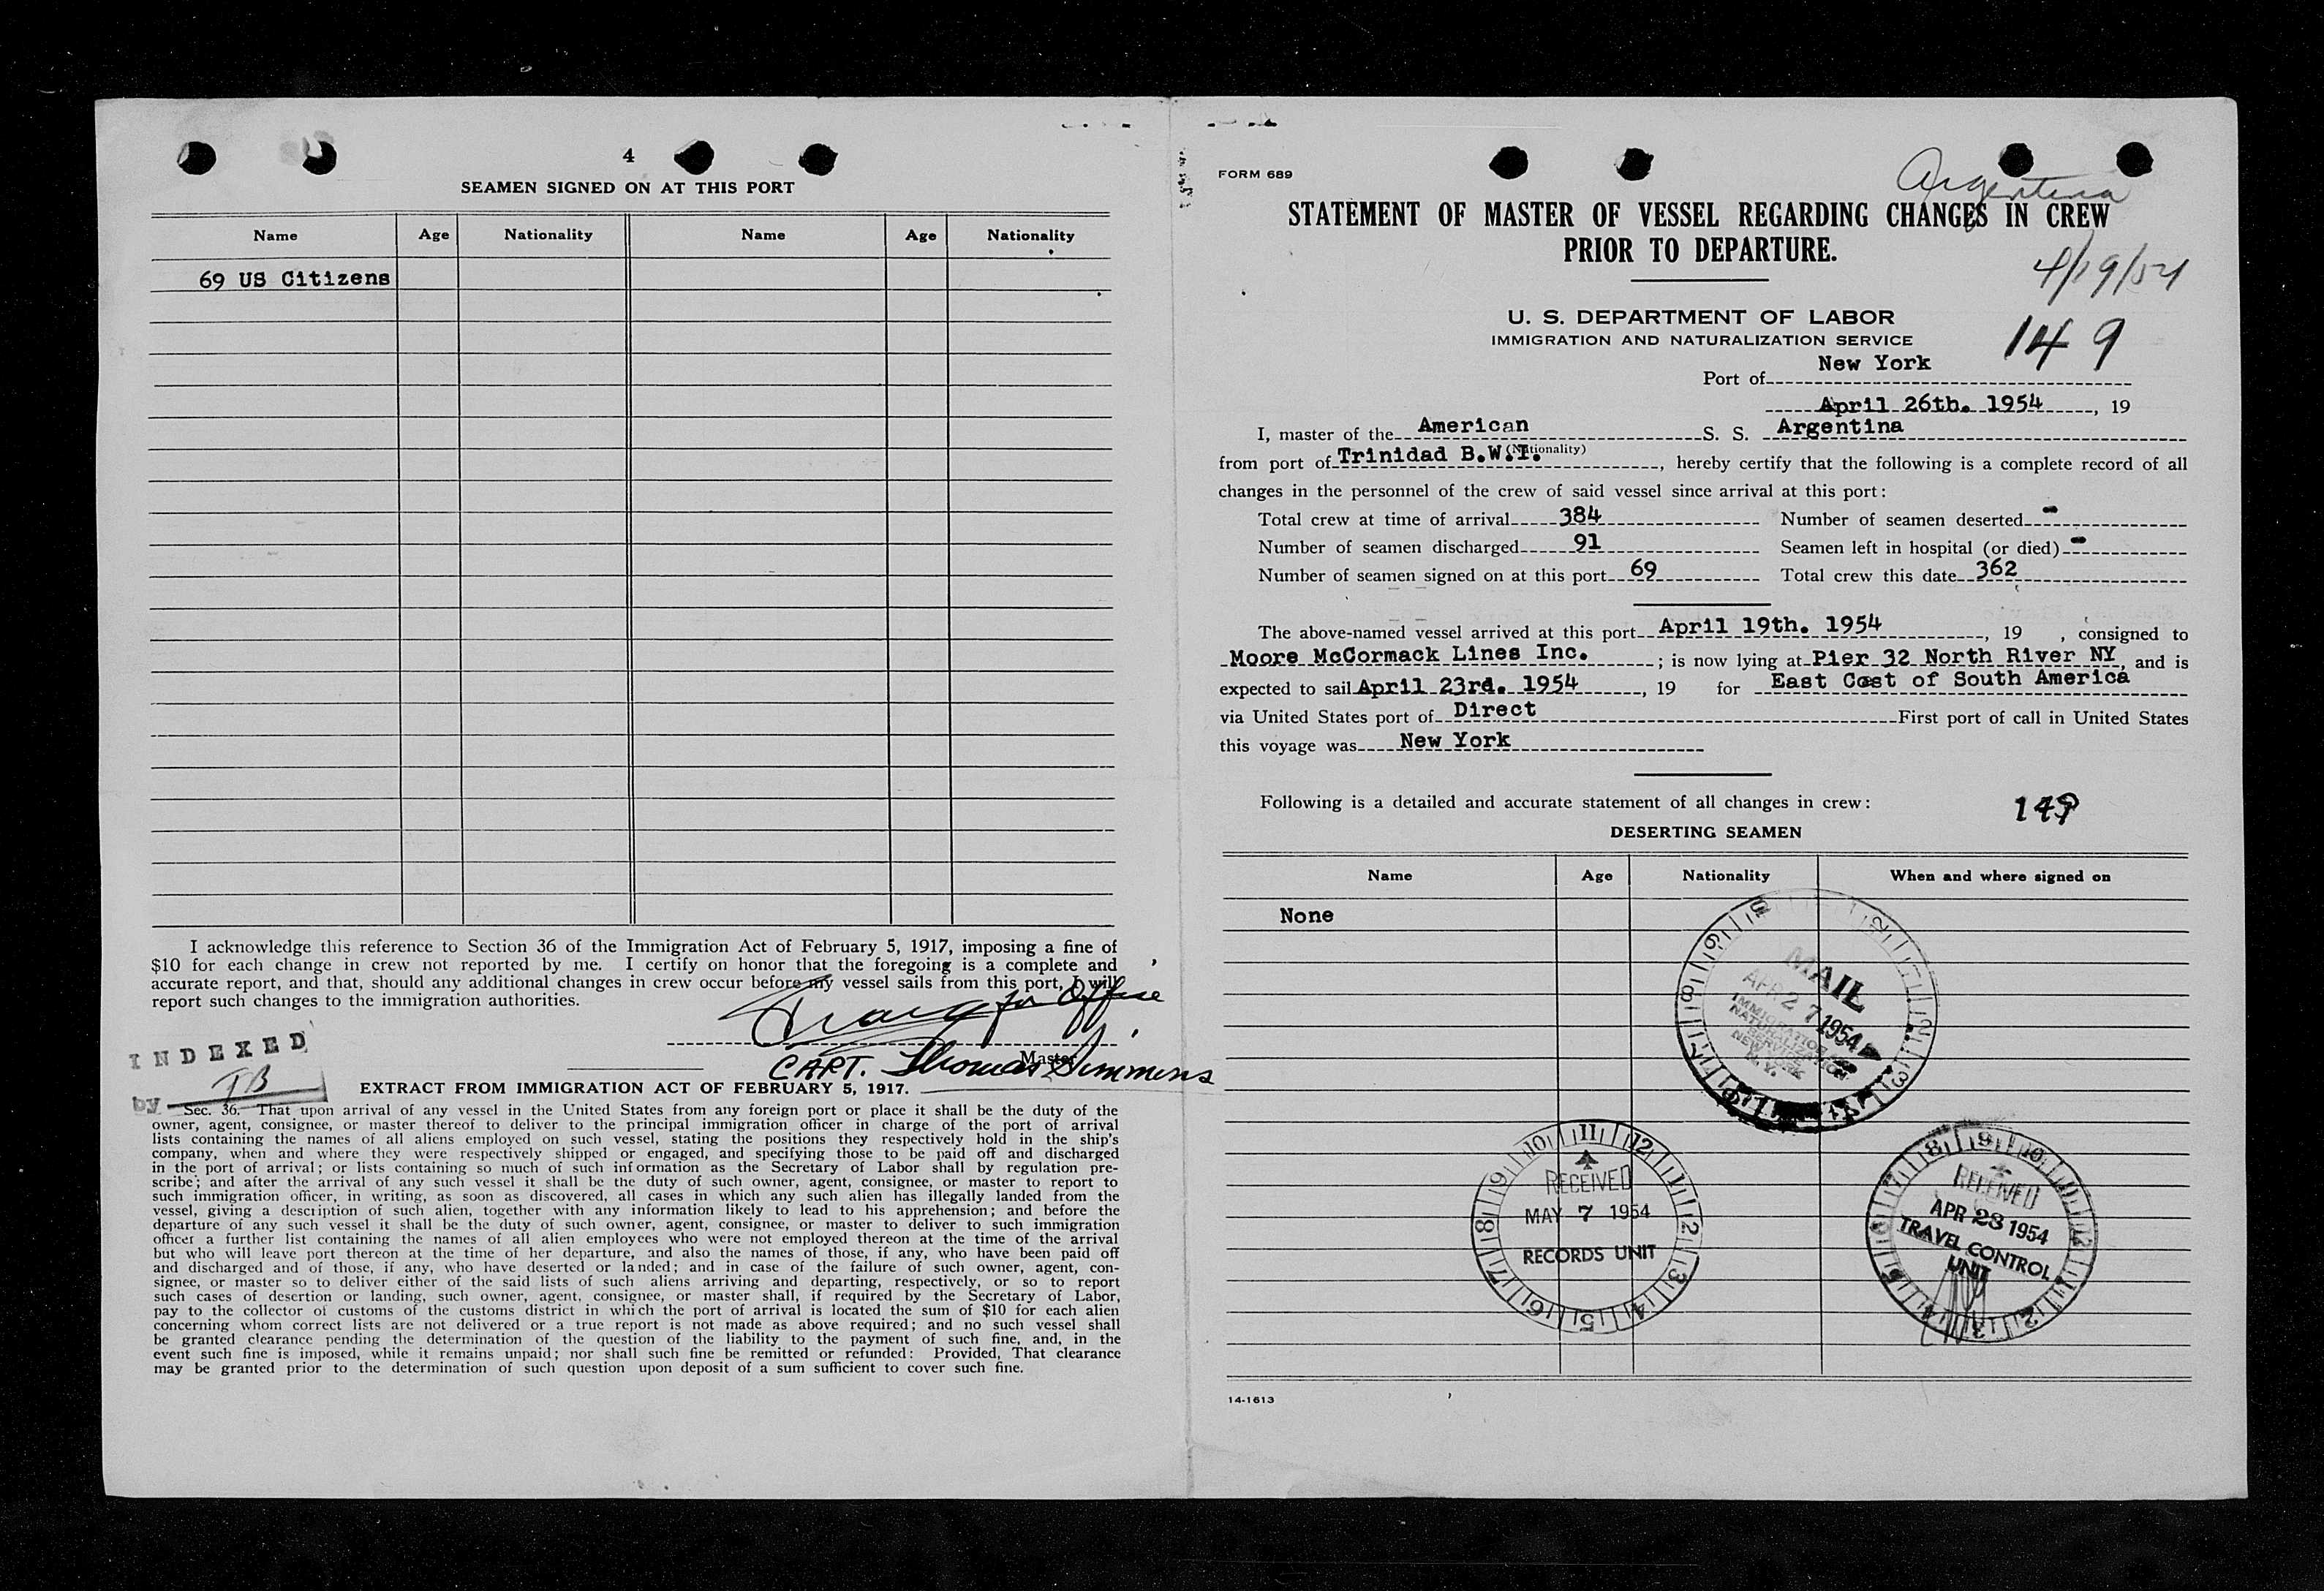 4
SEAMEN SIGNED ON AT THIS PORT
Name Age Nationality Name Age Nationality
69 US Citizens
I acknowledge this reference to Section 36 of the Immigration Act of February 5, 1917, imposing a fine of
$10 for each change in crew not reported by me. I certify on honor that the foregoing is a complete and
accurate report, and that, should any additional changes in crew occur before my vessel sails from this port, I will
report such changes to the immigration authorities.
for Office
Master
CAPT. Thomas Simmons
INDEXED
by TB
EXTRACT FROM IMMIGRATION ACT OF FEBRUARY 5, 1917.
Sec. 36. That upon arrival of any vessel in the United States from any foreign port or place it shall be the duty of the
owner, agent, consignee, or master thereof to deliver to the principal immigration officer in charge of the port of arrival
lists containing the names of all aliens employed on such vessel, stating the positions they respectively hold in the ship's
company, when and where they were respectively shipped or engaged, and specifying those to be paid off and discharged
in the port of arrival; or lists containing so much of such information as the Secretary of Labor shall by regulation pre-
scribe; and after the arrival of any such vessel it shall be the duty of such owner, agent, consignee, or master to report to
such immigration officer, in writing, as soon as discovered, all cases in which any such alien has illegally landed from the
vessel, giving a description of such alien, together with any information likely to lead to his apprehension; and before the
departure of any such vessel it shall be the duty of such owner, agent, consignee, or master to deliver to such immigration
officer a further list containing the names of all alien employees who were not employed thereon at the time of the arrival
but who will leave port thereon at the time of her departure, and also the names of those, if any, who have been paid off
and discharged and of those, if any, who have deserted or landed; and in case of the failure of such owner, agent, con-
signee, or master so to deliver either of the said lists of such aliens arriving and departing, respectively, or so to report
such cases of desertion or landing, such owner, agent, consignee, or master shall, if required by the Secretary of Labor,
pay to the collector of customs of the customs district in which the port of arrival is located the sum of $10 for each alien
concerning whom correct lists are not delivered or a true report is not made as above required; and no such vessel shall
be granted clearance pending the determination of the question of the liability to the payment of such fine, and, in the
event such fine is imposed, while it remains unpaid; nor shall such fine be remitted or refunded: Provided, That clearance
may be granted prior to the determination of such question upon deposit of a sum sufficient to cover such fine.
FORM 689
Argentina
STATEMENT OF MASTER OF VESSEL REGARDING CHANGES IN CREW
PRIOR TO DEPARTURE.
4/19/54
U. S. DEPARTMENT OF LABOR
IMMIGRATION AND NATURALIZATION SERVICE
149
Port of New York
April 26th. 1954, 19
I, master of the American S. S. Argentina
(Nationality)
from port of Trinidad B.W.I., hereby certify that the following is a complete record of all
changes in the personnel of the crew of said vessel since arrival at this port:
Total crew at time of arrival 384 Number of seamen deserted -
Number of seamen discharged 91 Seamen left in hospital (or died) -
Number of seamen signed on at this port 69 Total crew this date 362
The above-named vessel arrived at this port April 19th. 1954, 19 , consigned to
Moore McCormack Lines Inc. ; is now lying at Pier 32 North River NY, and is
expected to sail April 23rd. 1954, 19 for East Cost of South America
via United States port of Direct First port of call in United States
this voyage was New York
Following is a detailed and accurate statement of all changes in crew:
149
DESERTING SEAMEN
Name Age Nationality When and where signed on
None
MAIL
APR 27 1954
IMMIGRATION
NATURALIZATION
SERVICE
NEW YORK
N.Y.
10 11 12 1 2 3 4 5 6 7 8 9
RECEIVED
MAY 7 1954
RECORDS UNIT
RECEIVED
APR 28 1954
TRAVEL CONTROL
UNIT
14-1613